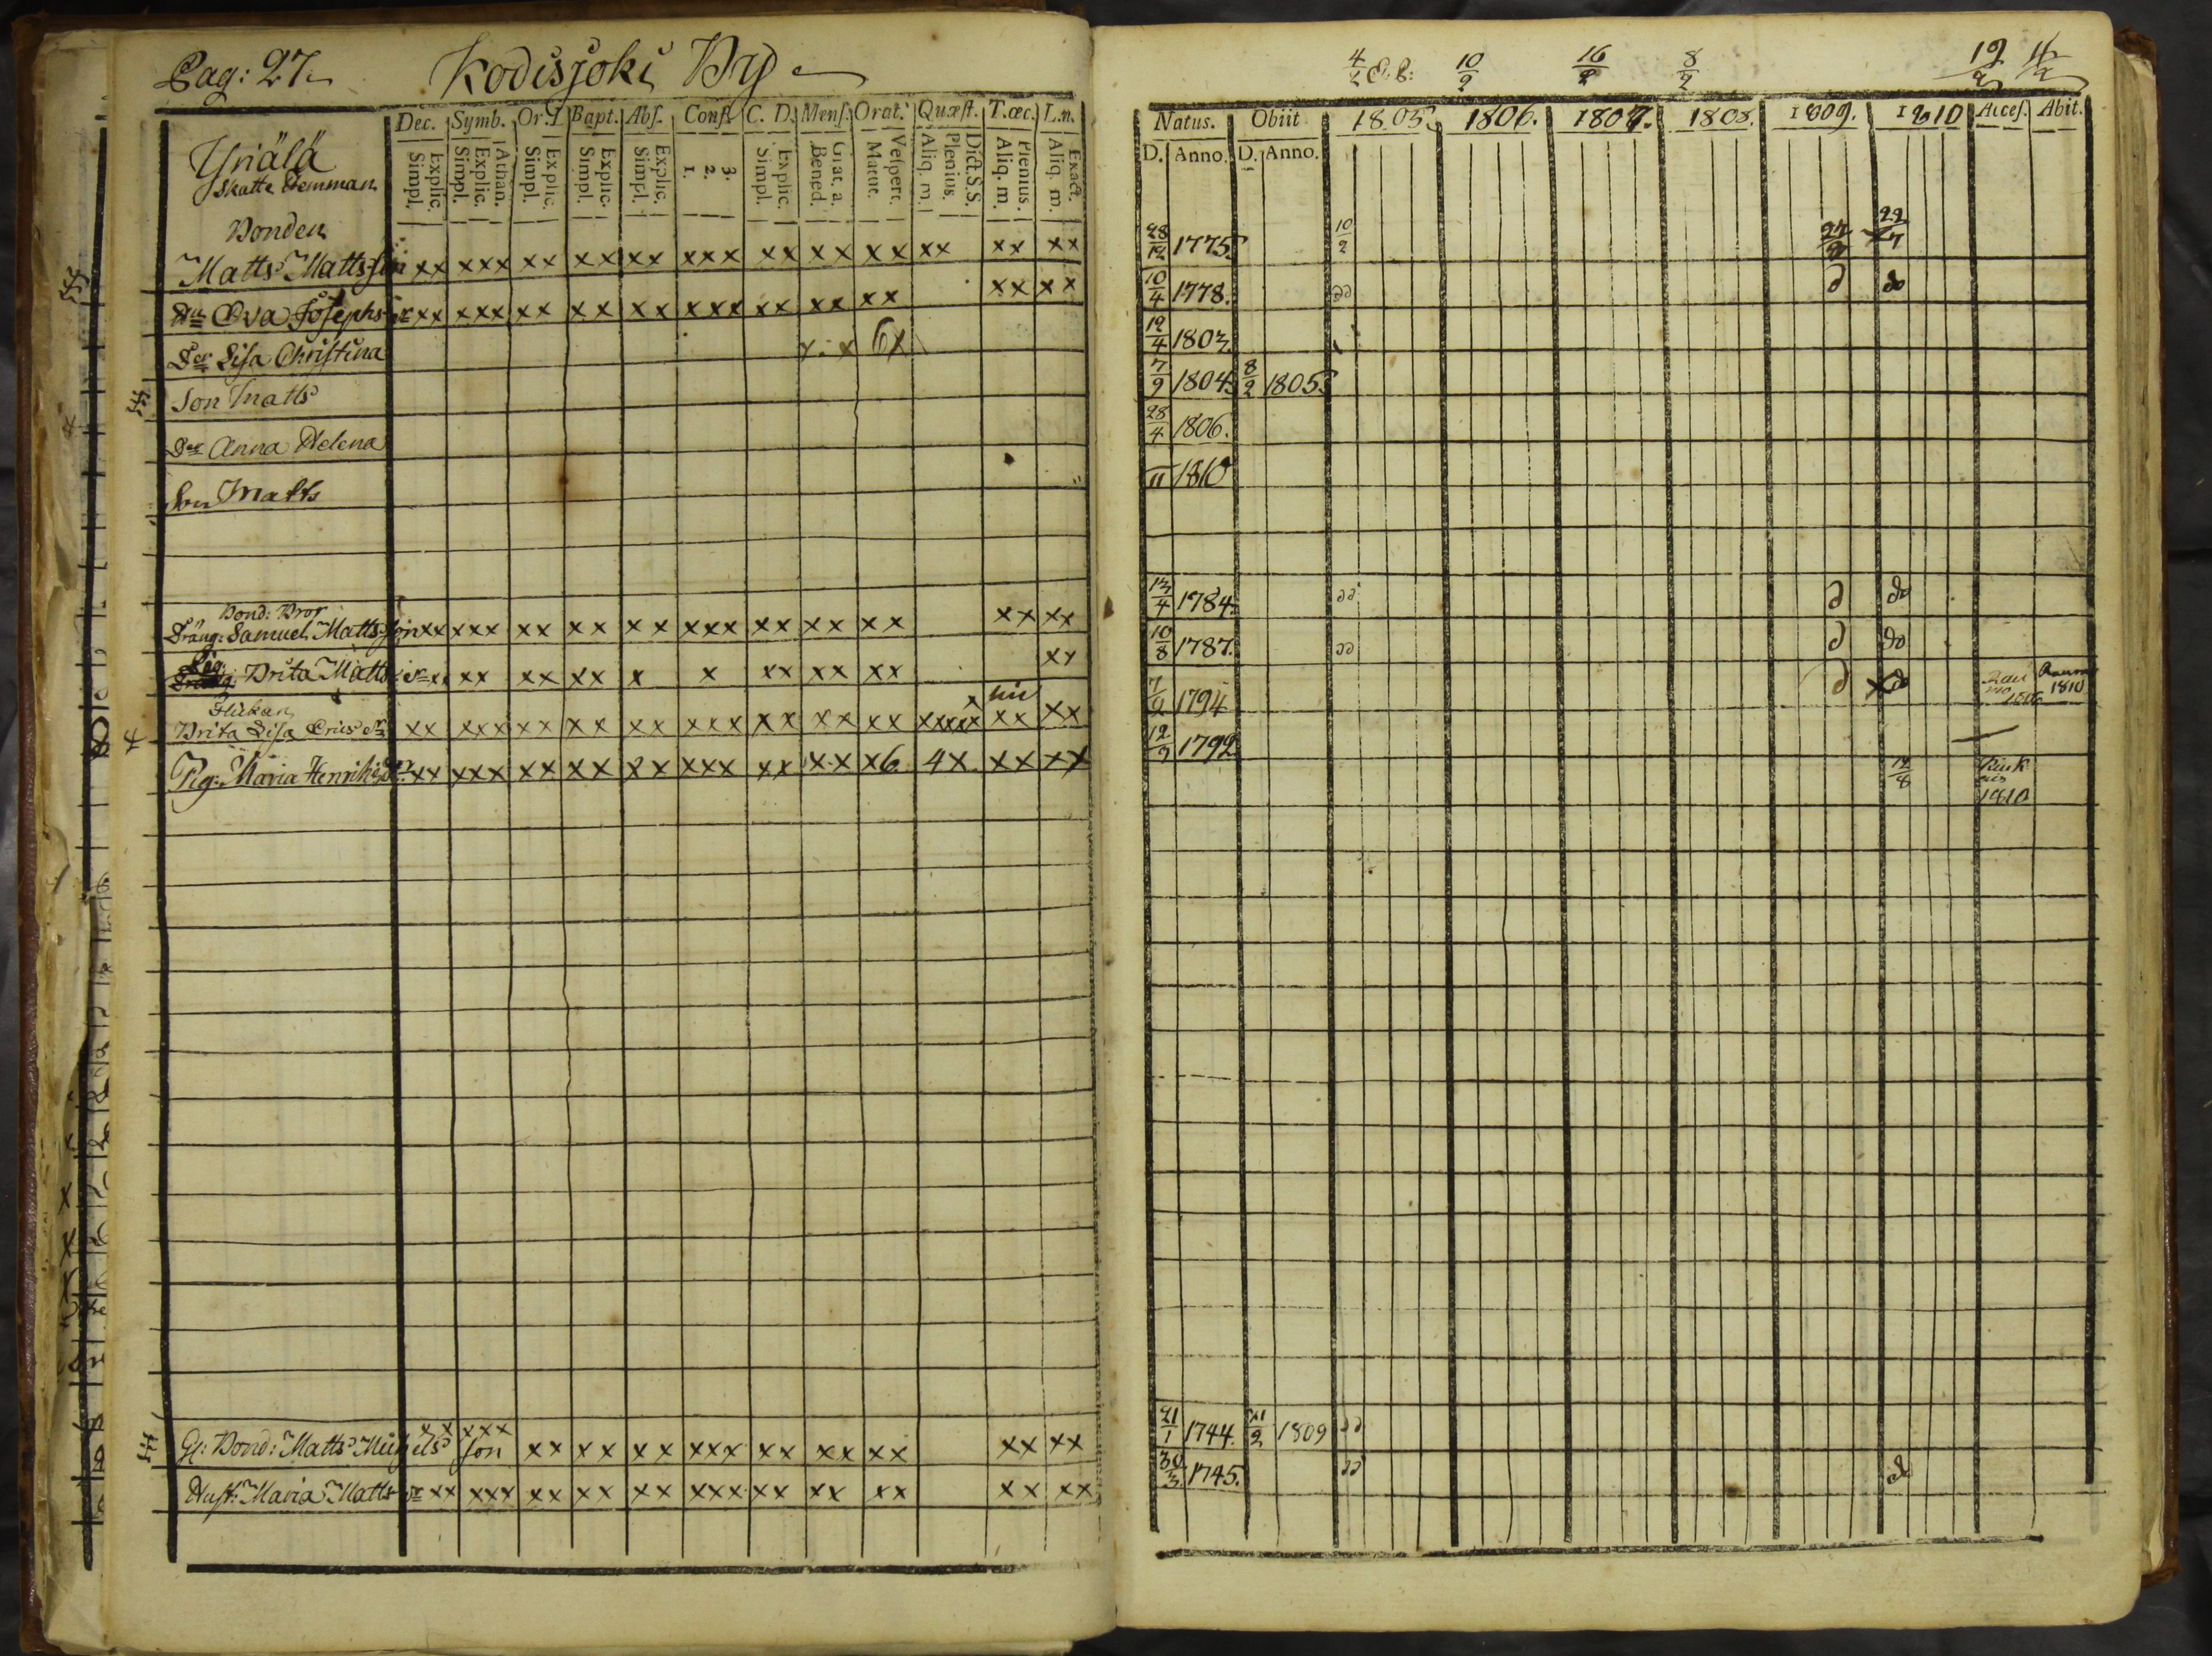 Pag: 27. Kodisjoki By
Dec. Symb. Or.D. Bapt. Abs. Conf. C. D. Mens. Orat. Quæst. T.œc. L.n.
Explic. Simpl. Athan. Explic. Simpl. Explic. Simpl. Explic. Simpl. Explic. Simpl. 3. 2. 1. Explic. Simpl. Grat. a. Bened. Vespert. Matut. Dict.S.S. Plenius. Aliq. m. Plenius. Aliq. m. Exact. Aliq. m.
Yriälä
Skatte Hemman
Bonden
Matts Mattsson xx xxx xx xx xx xxx xx xx xx xx xx xx
Hu Eva Josephs dr xx xxx xx xx xx xxx xx xx xx xx xx
Dr Lisa Christina x.x 6x
Son Matts
Dr Anna Helena
Son Matts
Bond: Bror
Dräng: Samuel Mattsson xx xxx xx xx xx xxx xx xx xx xx xx
Pig:
Brita Matts dr xx xx xx xx x x xx xx xx xx
Flickan
Brita Lisa Erics dr xx xxx xx xx xx xxx xx xx xx xxxxx xx xx
Pig: Maria Henriks dr xx xxx xx xx xx xxx xx xx x6 4x xx xx
xx xxx
Gl: Bond: Matts Michels son xx xx xx xxx xx xx xx xx xx
Hust: Maria Matts dr xx xxx xx xx xx xxx xx xx xx xx xx
4/2 10/2 16/2 8/2 19/2
Natus. Obiit 1805. 1806. 1807. 1808. 1809. 1810 Acces. Abit.
D. Anno. D. Anno.
28/12 1775. 10/2 22/7
10/4 1778. dd d do
12/4 1803.
7/9 1804. 8/2 1805.
28/4 1806.
11 1810
13/4 1784. dd d do
10/8 1787. dd d do
1794 d do Raumo 1810
12/3 1792.
1810
21/1 1744. 21/2 1809 dd
30/3 1745. dd